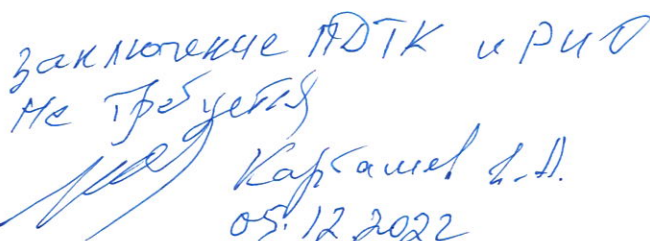 Заключение ПДТК и РИО
не требуется
Карташев
05.12.2022